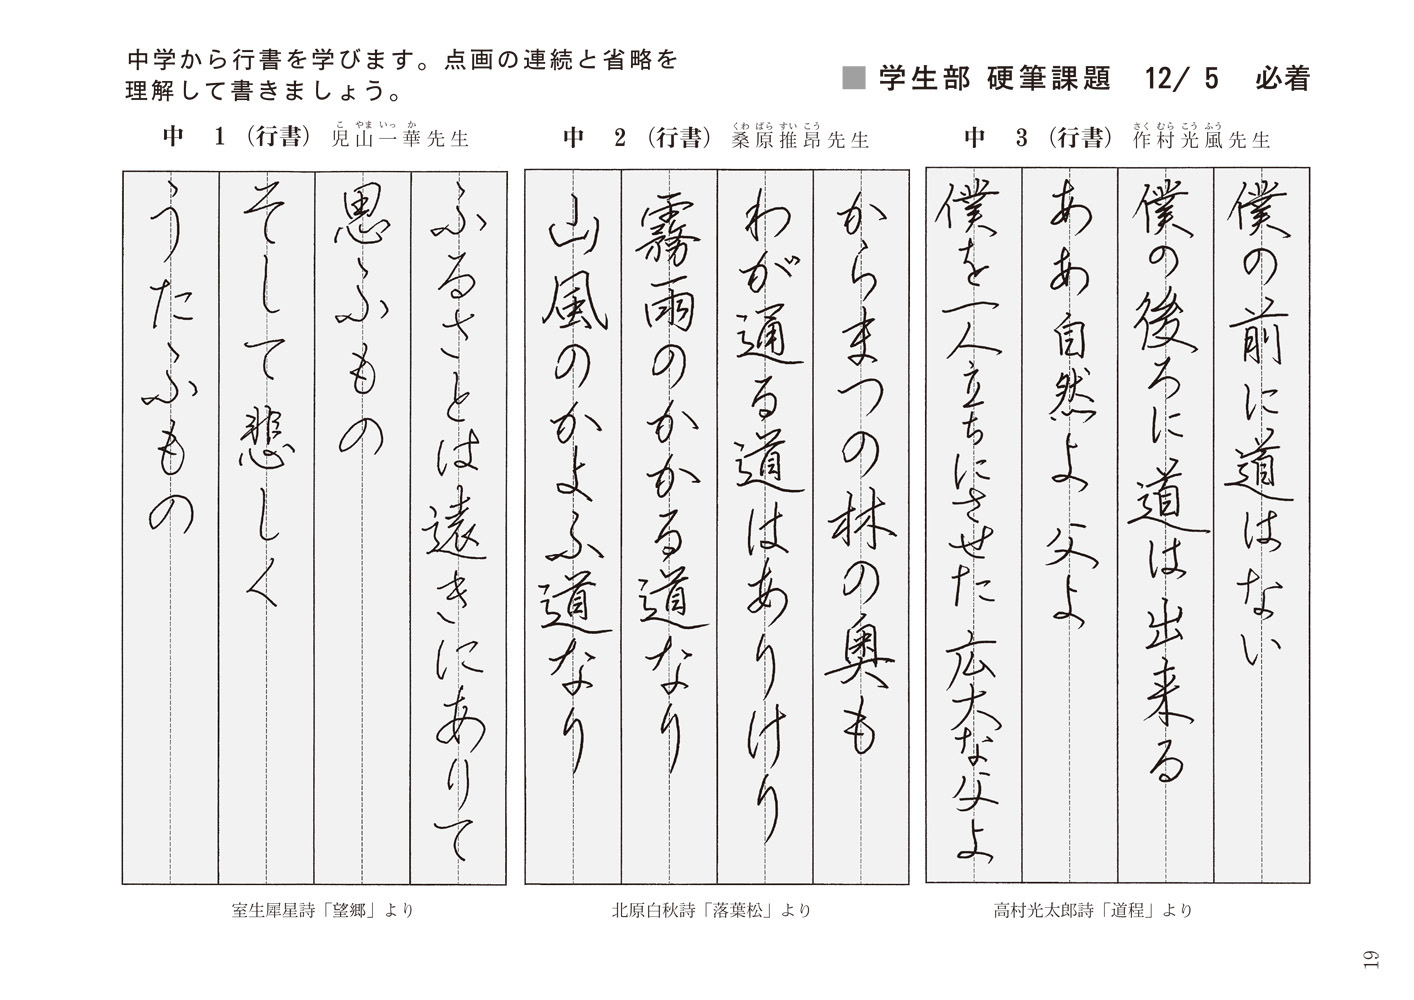 中学から行書を学びます。点画の連続と省略を
理解して書きましょう。
■ 学生部 硬筆課題 12/ 5 必着
中 1 （行書） 児山一華先生
こ やま いっ か
ふるさとは遠きにありて
思ふもの
そして悲しく
うたふもの
室生犀星詩「望郷」より
中 2 （行書） 桑原推昂先生
くわ ばら すい こう
からまつの林の奥も
わが通る道はありけり
霧雨のかかる道なり
山風のかよふ道なり
北原白秋詩「落葉松」より
中 3 （行書） 作村光風先生
さく むら こう ふう
僕の前に道はない
僕の後ろに道は出来る
ああ自然よ父よ
僕を一人立ちにさせた広大な父よ
高村光太郎詩「道程」より
19